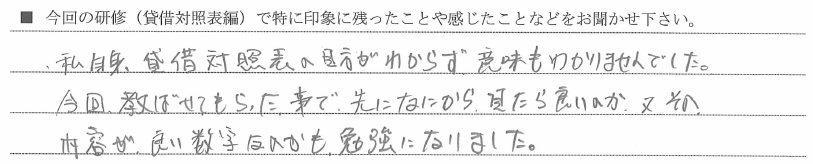 ■ 今回の研修（貸借対照表編）で特に印象に残ったことや感じたことなどをお聞かせ下さい。
、私自身、貸借対照表の見方がわからず、意味もわかりませんでした。
今回、教ばせてもらった事で、先になにから、見たら良いのか、又その、
内容が、良い数字なのかも、勉強になりました。